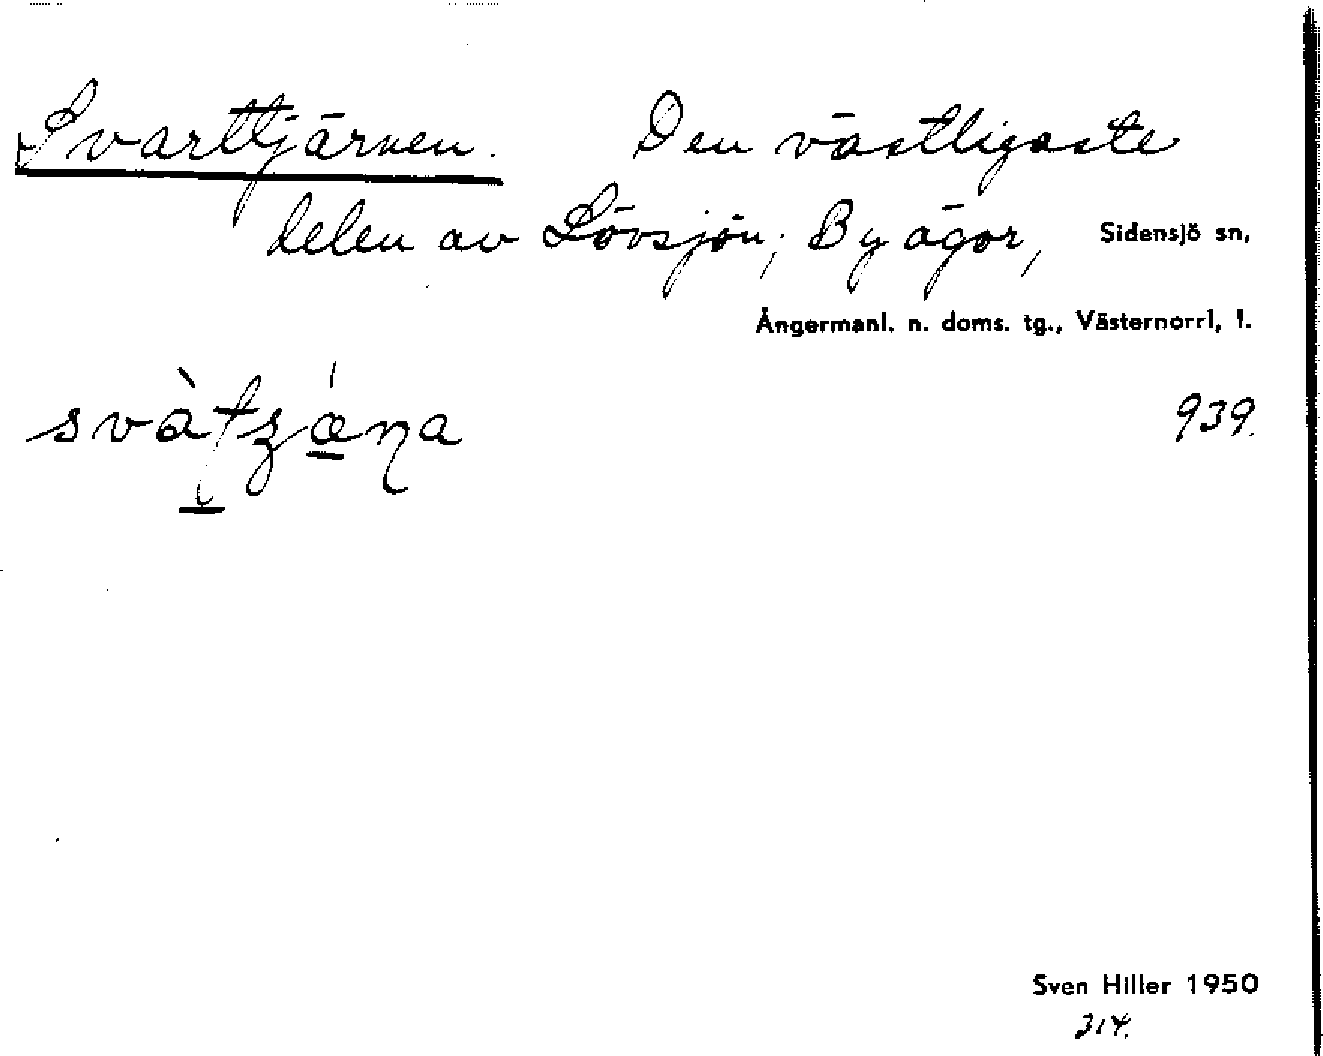 Svarttjärnen. Den västligaste
delen av Lövsjön; By ägor, Sidensjö sn,
Ångermanl. n. doms. tg., Västernorrl, l.
939.
Sven Hiller 1950
314.